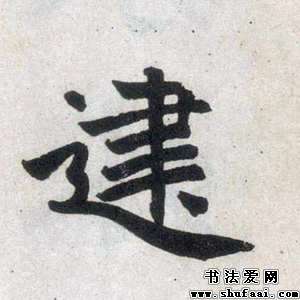 建
书法爱网
www.shufaai.com